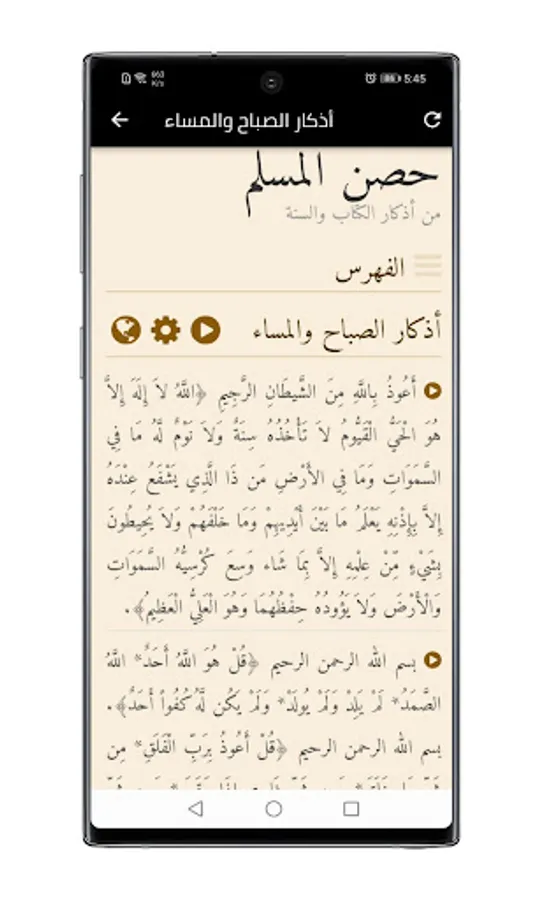 663 K/s 5:45
أذكار الصباح والمساء
حصن المسلم
من أذكار الكتاب والسنة
الفهرس
أذكار الصباح والمساء
أَعُوذُ بِاللَّهِ مِنَ الشَّيطَانِ الرَّجِيمِ ﴿اللَّهُ لاَ إِلَهَ إِلاَّ
هُوَ الْحَيُّ الْقَيُّومُ لاَ تَأْخُذُهُ سِنَةٌ وَلاَ نَوْمٌ لَّهُ مَا فِي
السَّمَوَاتِ وَمَا فِي الأَرْضِ مَن ذَا الَّذِي يَشْفَعُ عِنْدَهُ
إِلاَّ بِإِذْنِهِ يَعْلَمُ مَا بَيْنَ أَيْدِيهِمْ وَمَا خَلْفَهُمْ وَلاَ يُحِيطُونَ
بِشَيْءٍ مِّنْ عِلْمِهِ إِلاَّ بِمَا شَاء وَسِعَ كُرْسِيُّهُ السَّمَوَاتِ
وَالْأَرْضَ وَلاَ يَؤُودُهُ حِفْظُهُمَا وَهُوَ الْعَلِيُّ الْعَظِيمُ﴾.
بسم الله الرحمن الرحيم ﴿قُلْ هُوَ اللَّهُ أَحَدٌ* اللَّهُ
الصَّمَدُ* لَمْ يَلِدْ وَلَمْ يُولَدْ* وَلَمْ يَكُن لَّهُ كُفُواً أَحَدٌ﴾.
بسم الله الرحمن الرحيم ﴿قُلْ أَعُوذُ بِرَبِّ الْفَلَقِ* مِن